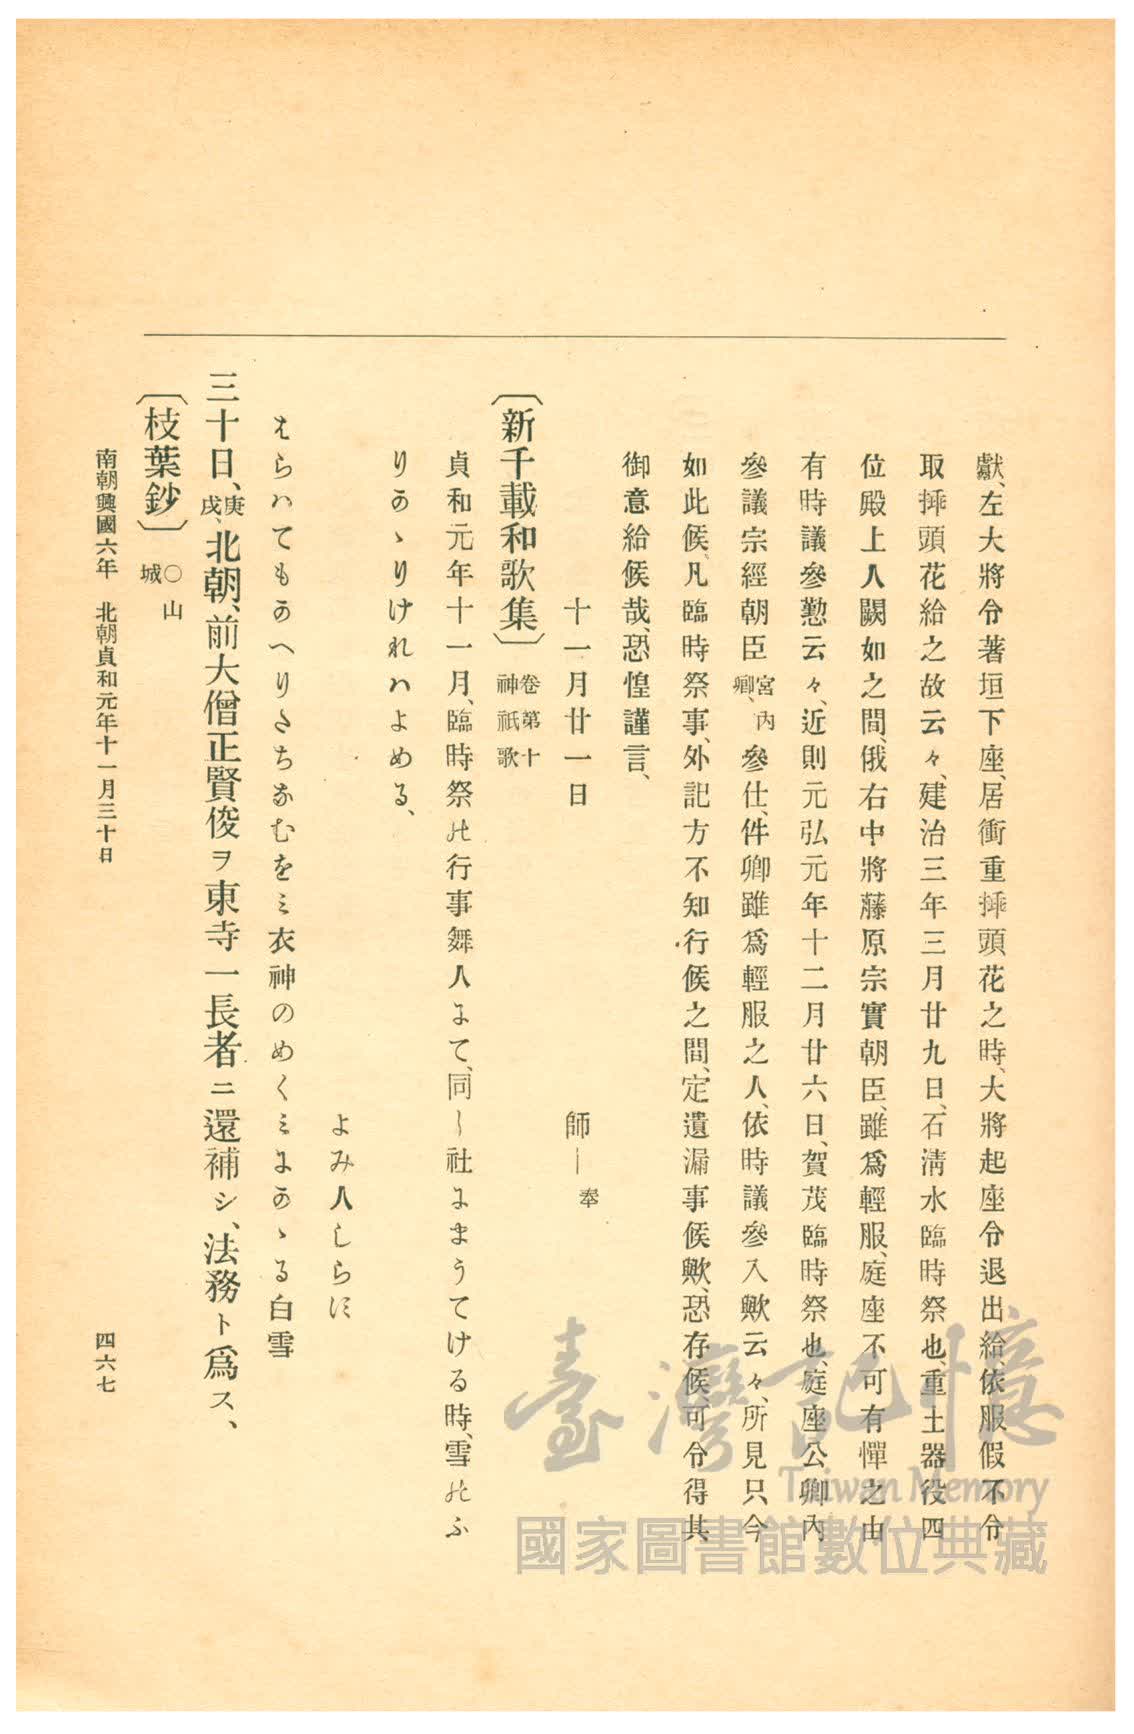 獻、左大將令著垣下座、居衝重揷頭花之時、大將起座令退出給、依服假不令
取揷頭花給之故云々、建治三年三月廿九日、石淸水臨時祭也、重土器役四
位殿上人闕如之間、俄右中將藤原宗實朝臣、雖爲輕服、庭座不可有憚之由
有時議參懃云々、近則元弘元年十二月廿六日、賀茂臨時祭也、庭座公卿內
參議宗經朝臣宮內卿、參仕、件卿雖爲輕服之人、依時議參入歟云々、所見只今
如此候、凡臨時祭事、外記方不知行候之間、定遺漏事候歟、恐存候可令得其
御意給候哉、恐惶謹言、
十一月廿一日
師—奉
〔新千載和歌集〕卷第十神祇歌
貞和元年十一月、臨時祭れ行事舞人よて、同し社よまうてける時、雪れふ
りかゝりけれハよめる、
よみ人しらに
をらハてもかへりさちなむをミ衣神のめくミよかゝる白雪
三十日、庚戌、北朝、前大僧正賢俊ヲ東寺一長者ニ還補シ、法務ト爲ス、
〔枝葉鈔〕○山城
南朝興國六年　北朝貞和元年十一月三十日
四六七
臺灣記憶
Taiwan Memory
國家圖書館數位典藏